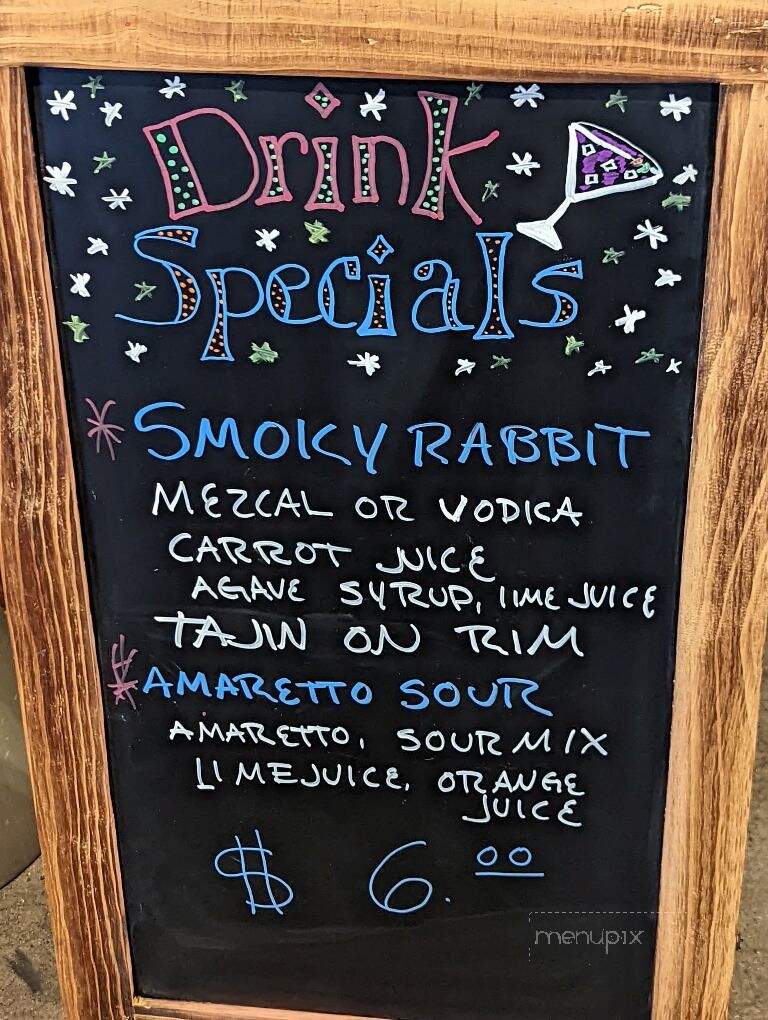 Drink
Specials
* SMOKY RABBIT
MEZCAL OR VODKA
CARROT JUICE
AGAVE SYRUP, LIME JUICE
TAJIN ON RIM
* AMARETTO SOUR
AMARETTO, SOUR MIX
LIME JUICE, ORANGE
JUICE
$ 6.00
menupix